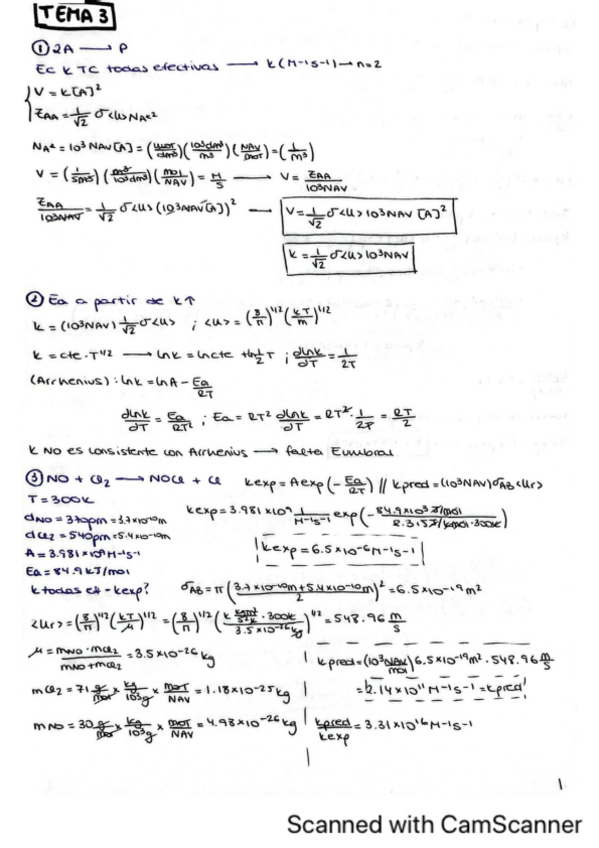 TEMA 3
① 2A → P
Ec k TC todas efectivas → k (M⁻¹s⁻¹) → n=2
V = k[A]²
Z_AA = 1/√2 σ<u>N_A*²
N_A* = 10³ NAV [A] = (mol/dm³)(10³dm³/m³)(NAV/mol) = (1/m³)
V = (1/sm³)(m³/10³dm³)(mol/NAV) = M/s → V = Z_AA/10³NAV
Z_AA/10³NAV = 1/√2 σ<u>(10³NAV[A])² → V = 1/√2 σ<u>10³NAV [A]²
k = 1/√2 σ<u>10³NAV
② Ea a partir de k↑
k = (10³NAV) 1/√2 σ<u> ; <u> = (8/π)^1/2 (kT/m)^1/2
k = cte·T^1/2 → lnk = lncte + ln½T ; dlnk/dT = 1/2T
(Arrhenius): lnk = lnA - Ea/RT
dlnk/dT = Ea/RT² ; Ea = RT² dlnk/dT = RT² · 1/2T = RT/2
k NO es consistente con Arrhenius → falta Eumbral
③ NO + Cl₂ → NOCl + Cl kexp = Aexp(-Ea/RT) // kpred = (10³NAV)σAB<ur>
T = 300K
kexp = 3.981×10⁹ 1/M⁻¹s⁻¹ exp(-84.9×10³ J/mol / 8.315J/kmol·300k)
dNO = 370pm = 3.7×10⁻¹⁰m
dCl₂ = 540pm = 5.4×10⁻¹⁰m
A = 3.981×10⁹ M⁻¹s⁻¹
kexp = 6.5×10⁻⁶ M⁻¹s⁻¹
Ea = 84.9 kJ/mol
k todas ef - kexp? σAB = π(3.7×10⁻¹⁰m + 5.4×10⁻¹⁰m / 2)² = 6.5×10⁻¹⁹m²
<ur> = (8/π)^1/2 (kT/μ)^1/2 = (8/π)^1/2 (k · 300k / 3.5×10⁻²⁶kg)^1/2 = 548.96 m/s
μ = mNO·mCl₂ / mNO+mCl₂ = 3.5×10⁻²⁶ kg
kpred = (10³NAV/mol) 6.5×10⁻¹⁹m² · 548.96 m/s
= 2.14×10¹¹ M⁻¹s⁻¹ = kpred
mCl₂ = 71 g/mol × kg/10³g × mol/NAV = 1.18×10⁻²⁵kg
mNO = 30 g/mol × kg/10³g × mol/NAV = 4.98×10⁻²⁶kg
kpred/kexp = 3.31×10¹⁶ M⁻¹s⁻¹
1
Scanned with CamScanner